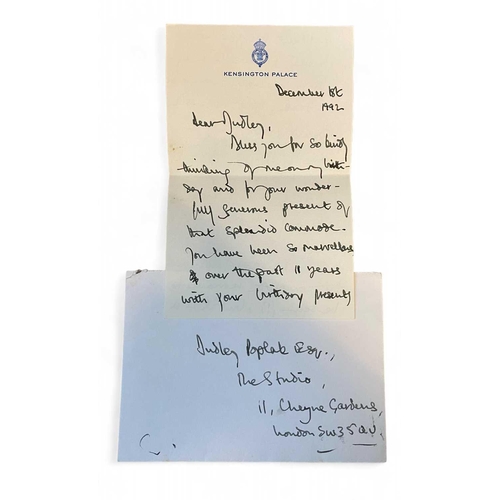 KENSINGTON PALACE
December 1st
1992
Dear Dudley,
Bless you for so kindly
thinking of me on my birth-
day and for your wonder-
fully generous present of
that splendid commode.
You have been so marvellous
over the past 11 years
with your birthday presents
Dudley Poplak Esq.,
The Studio,
11, Cheyne Gardens,
London SW3 5QU.